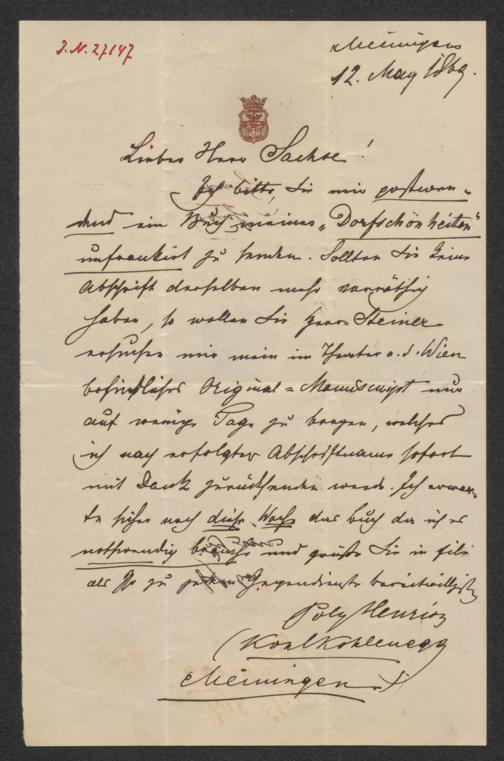 J.N. 27147
Meiningen
12. May 1869.
Lieber Herr Sachse!
Ich bitte, Sie mir postwen-
dend ein Buch meines "Dorfschönheiten"
unfrankirt zu senden. Sollten Sie keine
Abschrift derselben mehr vorräthig
haben, so wollen Sie Herrn Steiner
ersuchen mir mein im Theater a. d. Wien
befindliches Original-Manuscript nur
auf wenige Tage zu borgen, welches
ich nach erfolgter Abschriftname sofort
mit Dank zurücksenden werde. Ich erwar-
te sicher noch diese Woche das Buch da ich es
nothwendig brauche und grüße Sie in Eile
als Ihr zu jedem Gegendienste bereitwilligster
Poly Henrion
(Kohl Kohlenegg
Meiningen.)